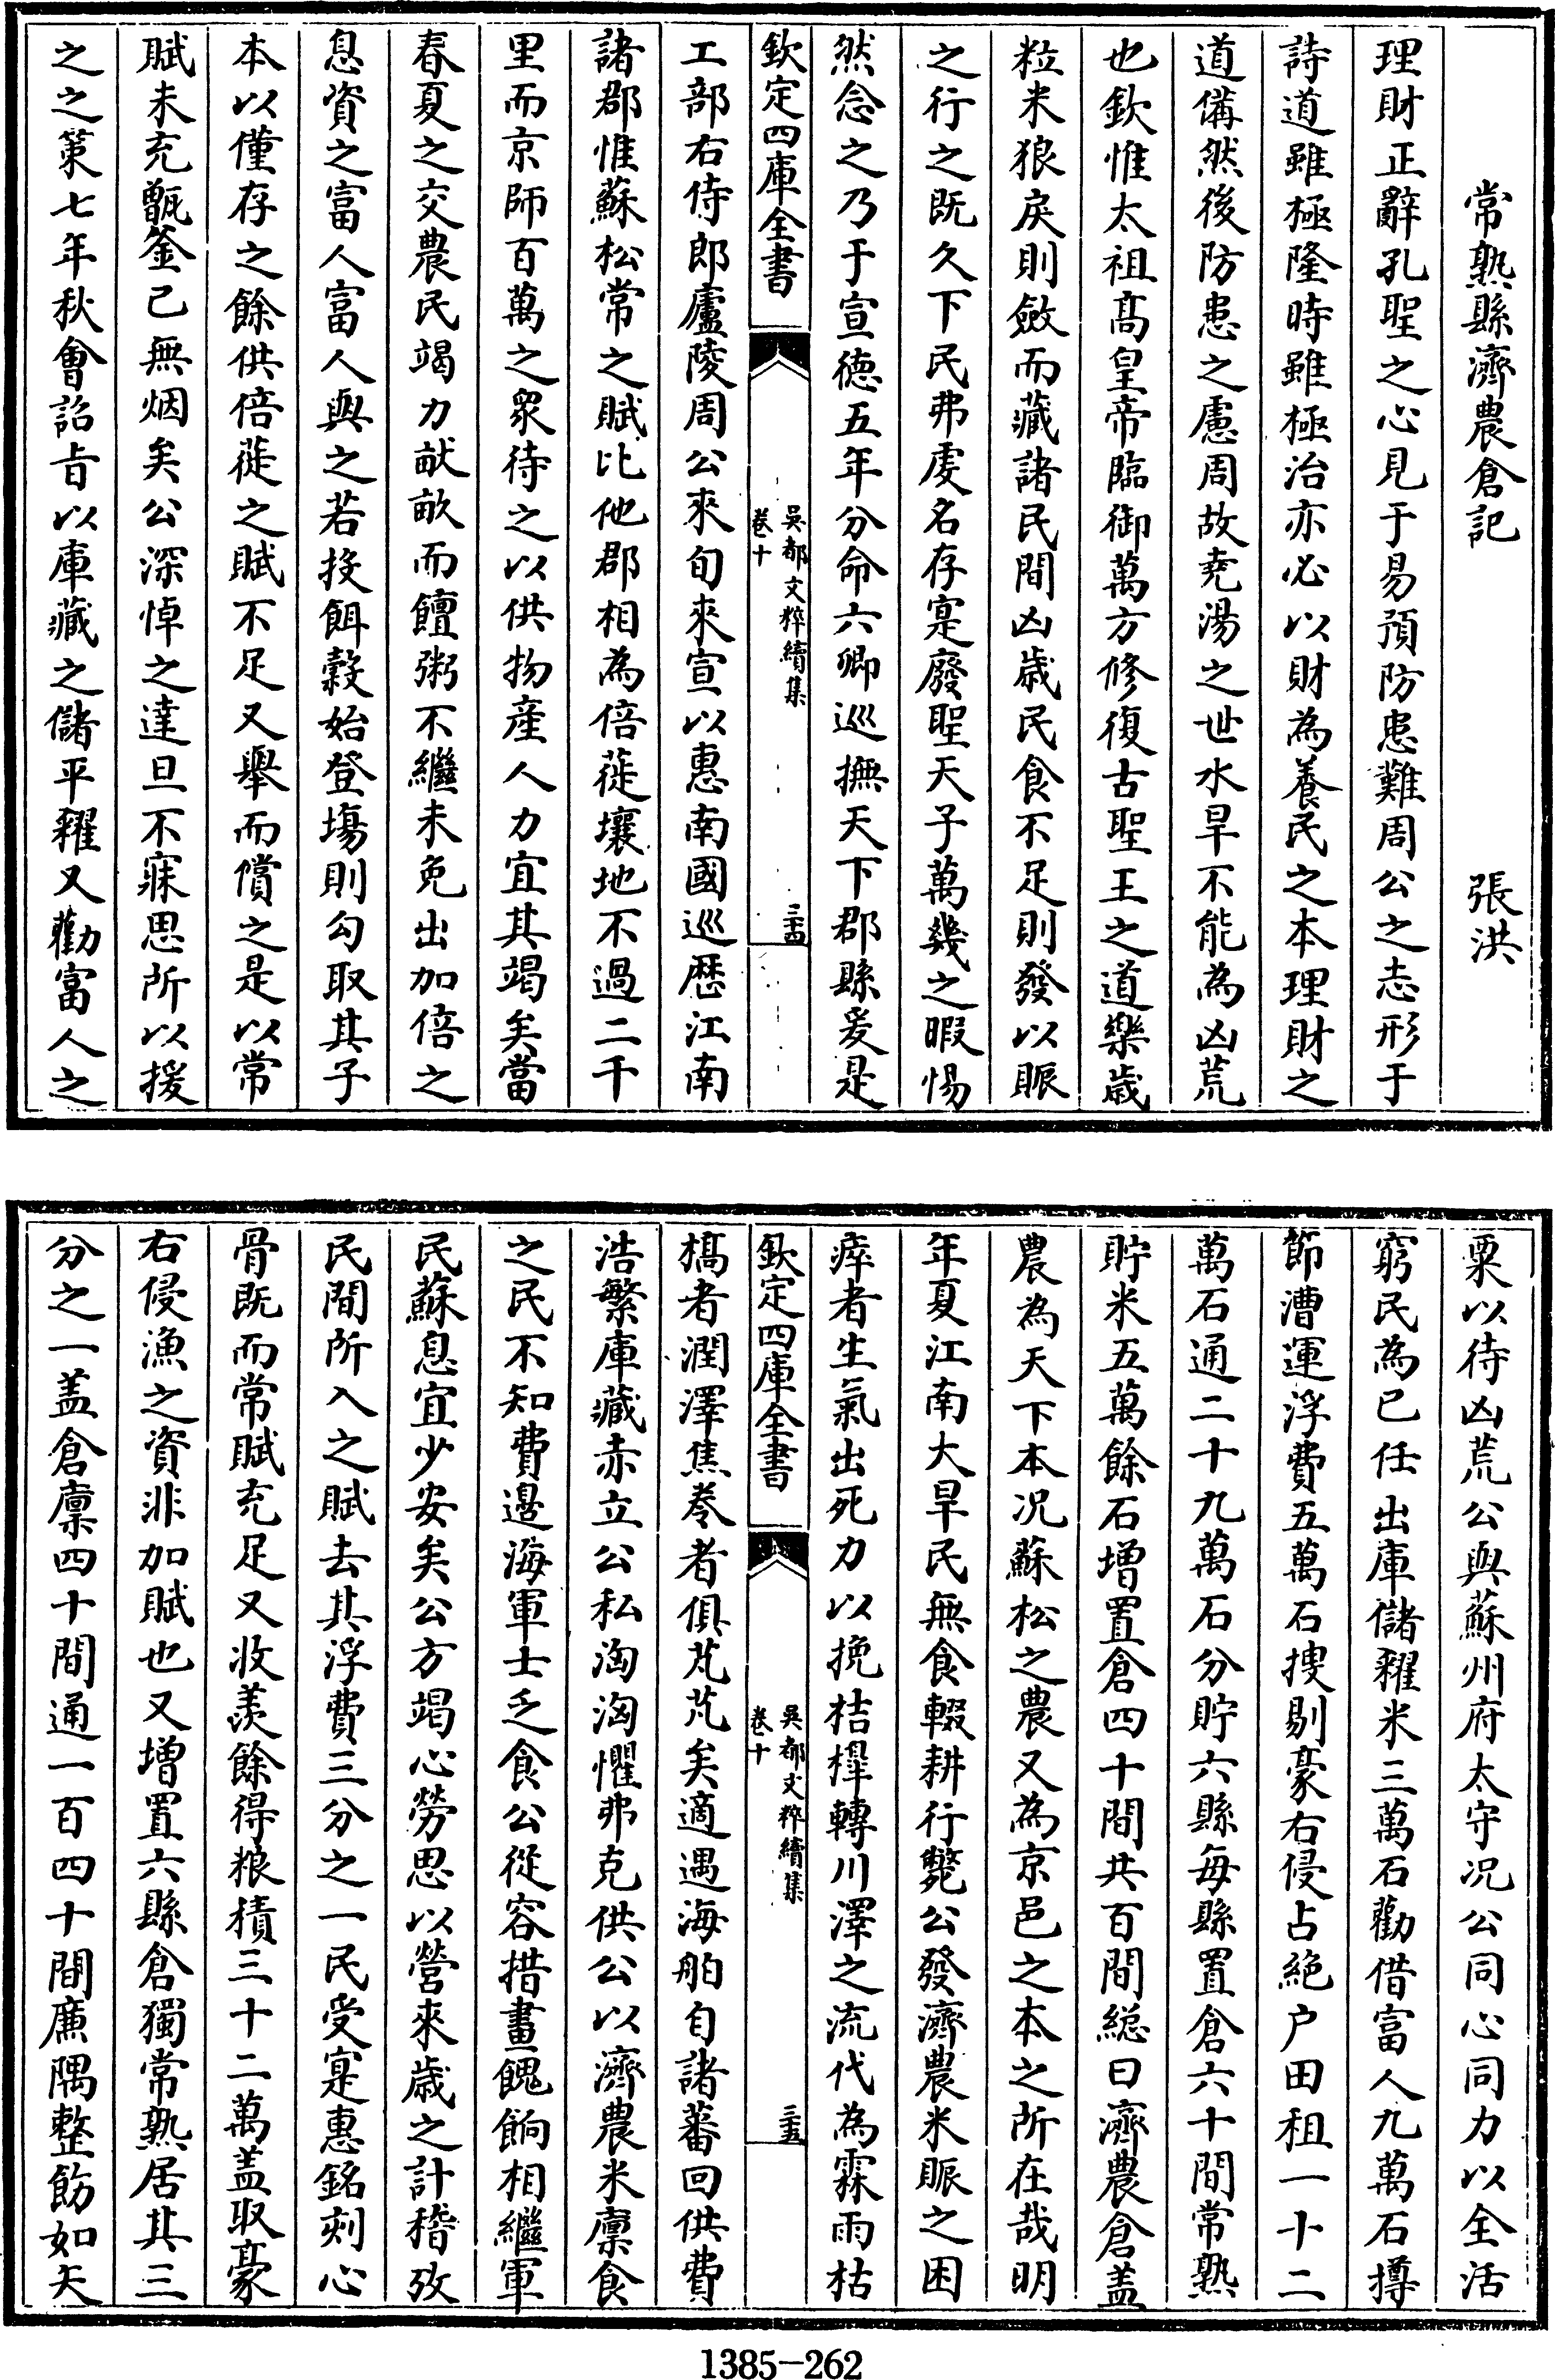 常熟縣濟農倉記　張洪
理財正辭孔聖之心見于易預防患難周公之志形于
詩道雖極隆時雖極治亦必以財為養民之本理財之
道備然後防患之慮周故堯湯之世水旱不能為凶荒
也欽惟太祖高皇帝臨御萬方修復古聖王之道樂歲
粒米狼戾則斂而藏諸民間凶歲民食不足則發以賑
之行之既久下民弗虔名存寔廢聖天子萬幾之暇惕
然念之乃于宣德五年分命六卿巡撫天下郡縣爰是
欽定四庫全書
吳都文粹續集
卷十
三四
工部右侍郎廬陵周公來旬來宣以惠南國巡歷江南
諸郡惟蘇松常之賦比他郡相為倍蓰壤地不過二千
里而京師百萬之衆待之以供物產人力宜其竭矣當
春夏之交農民竭力猷畝而饘粥不繼未免出加倍之
息資之富人富人與之若投餌穀始登塲則勾取其子
本以僅存之餘供倍蓰之賦不足又舉而償之是以常
賦未充甑釜已無烟矣公深悼之達旦不寐思所以援
之之策七年秋會詔旨以庫藏之儲平糴又勸富人之
粟以待凶荒公與蘇州府太守况公同心同力以全活
窮民為已任出庫儲糴米三萬石勸借富人九萬石撙
節漕運浮費五萬石搜剔豪右侵占絕户田租一十二
萬石通二十九萬石分貯六縣每縣置倉六十間常熟
貯米五萬餘石增置倉四十間共百間総曰濟農倉盖
農為天下本况蘇松之農又為京邑之本之所在哉明
年夏江南大旱民無食輟耕行斃公發濟農米賑之困
瘁者生氣出死力以挽桔槔轉川澤之流代為霖雨枯
欽定四庫全書
吳都文粹續集
卷十
三五
槁者潤澤焦卷者俱芃芃矣適遇海舶自諸蕃回供費
浩繁庫藏赤立公私洶洶懼弗克供公以濟農米廩食
之民不知費邊海軍士乏食公從容措畫餽餉相繼軍
民蘇息宜少安矣公方竭心勞思以營來歲之計稽攷
民間所入之賦去其浮費三分之一民受寔惠銘刻心
骨既而常賦充足又收羨餘得粮積三十二萬盖取豪
右侵漁之資非加賦也又增置六縣倉獨常熟居其三
分之一盖倉廪四十間通一百四十間廉隅整飭如矢
1385-262